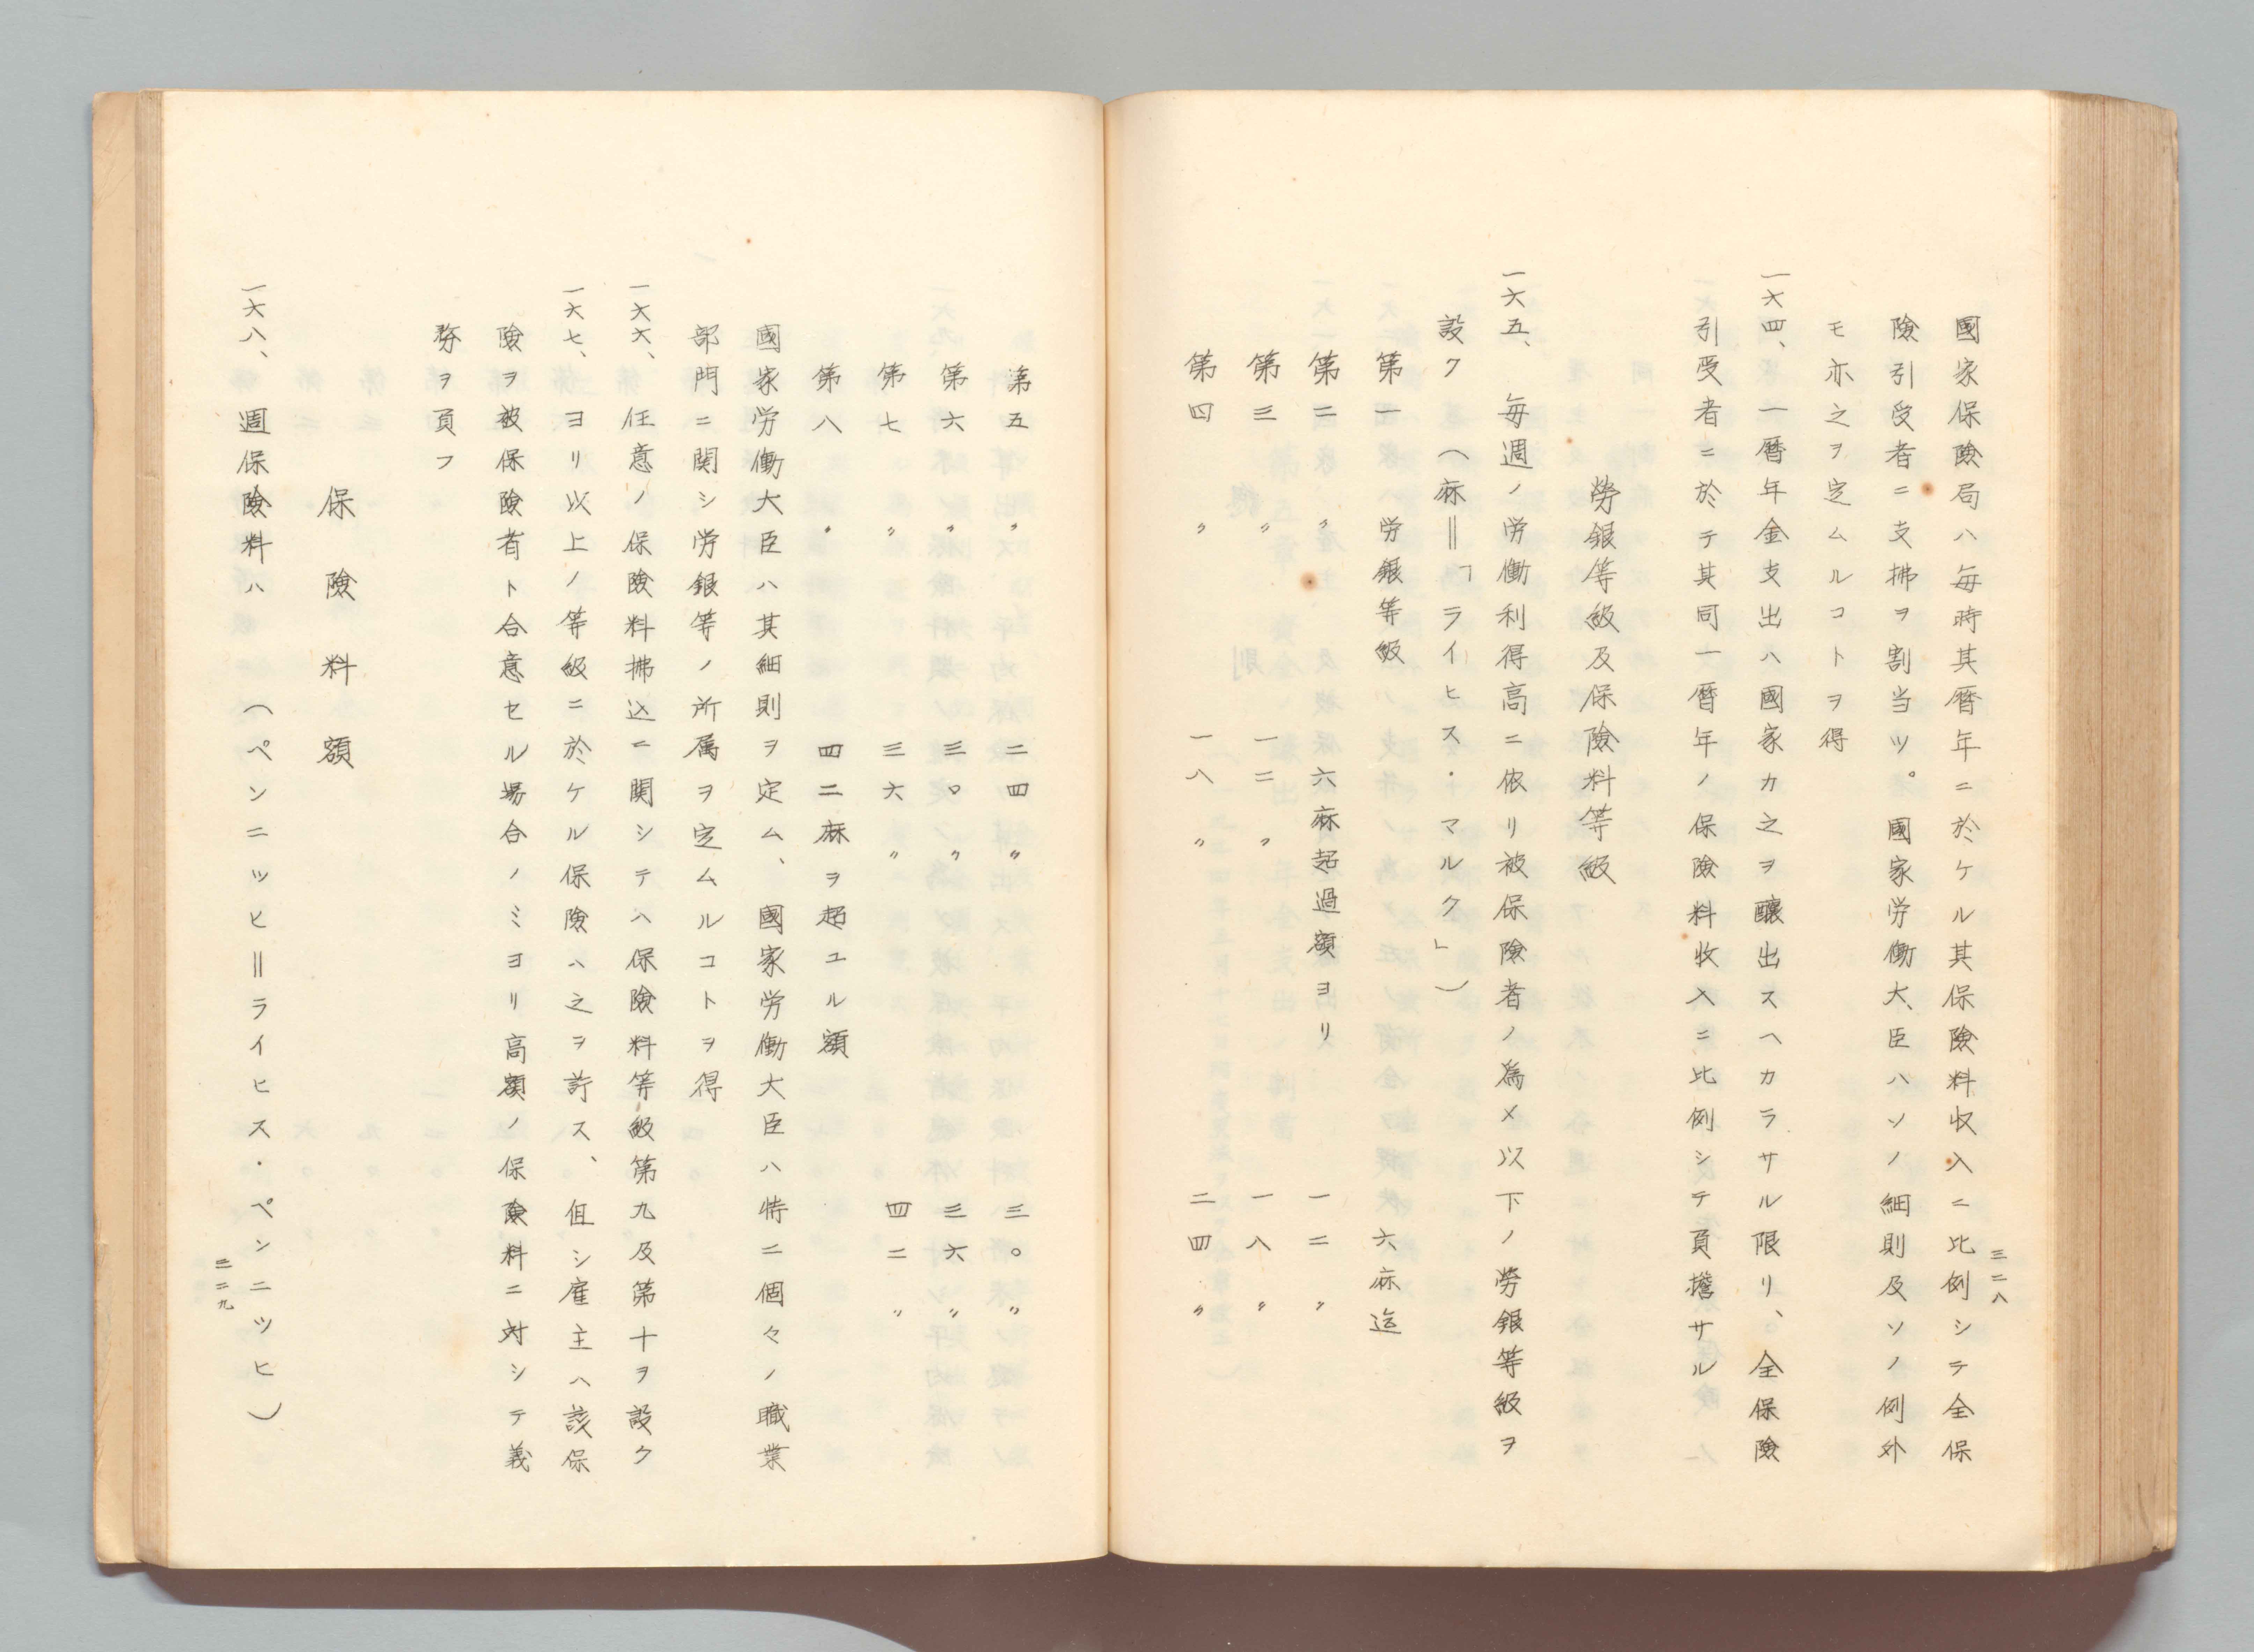 國家保險局ハ毎時其暦年ニ於ケル其保險料収入ニ比例シテ全保
險引受者ニ支拂ヲ割当ツ。國家労働大臣ハソノ細則及ソノ例外
モ亦之ヲ定ムルコトヲ得
一六四、一暦年金支出ハ國家カ之ヲ釀出スヘカラサル限リ、全保險
引受者ニ於テ其同一暦年ノ保險料收入ニ比例シテ負擔サル
勞銀等級及保險料等級
一六五、毎週ノ労働利得高ニ依リ被保險者ノ為メ以下ノ勞銀等級ヲ
設ク(麻＝「ライヒス・マルク」)
第一労銀等級 六麻迄
第二〃 六麻起過額ヨリ 一二〃
第三〃 一二〃 一八〃
第四〃 一八〃 二四〃
三二八
第五〃 二四〃 三〇〃
第六〃 三〇〃 三六〃
第七〃 三六〃 四二〃
第八〃 四二麻ヲ超ユル額
國家労働大臣ハ其細則ヲ定ム、國家労働大臣ハ特ニ個々ノ職業
部門ニ関シ労銀等ノ所属ヲ定ムルコトヲ得
一六六、任意ノ保險料拂込ニ関シテハ保險料等級第九及第十ヲ設ク
一六七、ヨリ以上ノ等級ニ於ケル保險ハ之ヲ許ス、但シ雇主ハ該保
險ヲ被保險者ト合意セル場合ノミヨリ高額ノ保險料ニ対シテ義
務ヲ負フ
保險料額
一六八、週保險料ハ(ペンニッヒ＝ライヒス・ペンニッヒ)
三二九